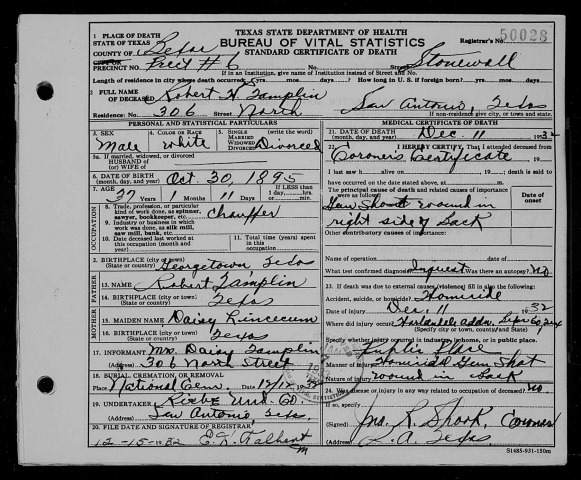 TEXAS STATE DEPARTMENT OF HEALTH
BUREAU OF VITAL STATISTICS
STANDARD CERTIFICATE OF DEATH
Registrar's No. 50028
1 PLACE OF DEATH
STATE OF TEXAS
COUNTY OF Bexar
CITY OR
PRECINCT NO. Prect #6 No. Street Stonewall
If in an Institution, give name of Institution instead of Street and No.
Length of residence in city where death occurred yrs. mos. days. How long in U. S. if foreign born? yrs. mos. days.
2 FULL NAME
OF DECEASED Robert H. Tamplin
Residence: No. 306 Street North San Antonio, Texas
If non-residence give city, or town and state.
PERSONAL AND STATISTICAL PARTICULARS
3. SEX Male
4. COLOR OR RACE white
5. SINGLE MARRIED WIDOWED DIVORCED (write the word) Divorced
3a. If married, widowed, or divorced
HUSBAND of
(or) WIFE of
6. DATE OF BIRTH
(month, day, and year) Oct. 30, 1895
7. AGE 37 Years 1 Months 11 Days If LESS than 1 day hrs. min.
OCCUPATION
8. Trade, profession, or particular
kind of work done, as spinner,
sawyer, bookkeeper, etc. Chauffer
9. Industry or business in which
work was done, as silk mill,
saw mill, bank, etc.
10. Date deceased last worked at
this occupation (month and
year)
11. Total time (years)
spent in this
occupation
2. BIRTHPLACE (city or town)
(State or country) Georgetown Texas
FATHER
13. NAME Robert Tamplin
14. BIRTHPLACE (city or town)
(State or country) Texas
MOTHER
15. MAIDEN NAME Daisy Lincecum
16. BIRTHPLACE (city or town)
(State or country) Texas
17. INFORMANT Mrs. Daisy Tamplin
(Address) 306 North Street
18. BURIAL, CREMATION, OR REMOVAL
Place National Cem. 19 32
19. UNDERTAKER
(Address) San Antonio Texas
20. FILE DATE AND SIGNATURE OF REGISTRAR
12-15-1932
MEDICAL CERTIFICATE OF DEATH
21. DATE OF DEATH
(month, day, and year) Dec. 11 1932
22. I HEREBY CERTIFY, That I attended deceased
from Coroner's Certificate 19
I last saw h alive on 19 ; death is said to
have occurred on the date stated above, at m.
The principal cause of death and related causes of importance
were as follows: Date of onset
Gun Shott wound in
right side of back
Other contributory causes of importance:
Name of operation Date of
What test confirmed diagnosis? Inquest Was there an autopsy? No
23. If death was due to external causes (violence) fill in also the following:
Accident, suicide, or homicide? Homicide
Date of injury Dec. 11 19 32
Where did injury occur?
(Specify city or town, county and State)
Specify whether injury occurred in industry, in home, or in public place.
Public Place
Manner of injury Homicidal Gun Shot
Nature of injury wound in back
24. Was disease or injury in any way related to occupation of deceased? No.
If so, specify
(Signed) Jno. R. Shook, Coroner
(Address) S.A. Texas
S1485-931-150m